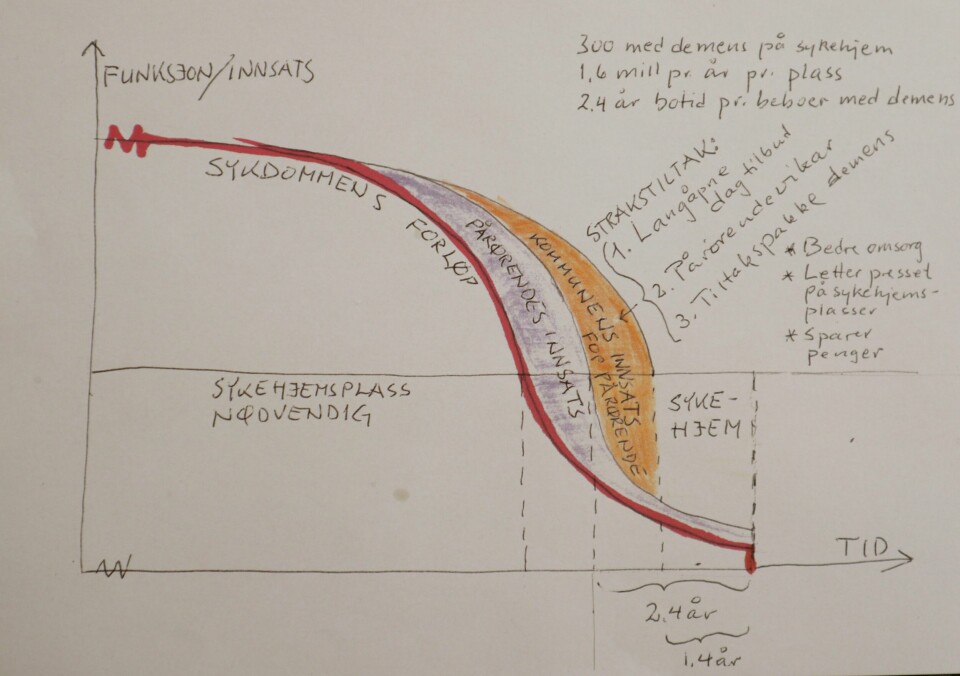 FUNKSJON/INNSATS
300 med demens på sykehjem
1,6 mill pr. år pr. plass
2.4 år botid pr. beboer med demens
SYKDOMMENS FORLØP
PÅRØRENDES INNSATS
KOMMUNENS INNSATS
FOR PÅRØRENDE
STRAKSTILTAK:
1. Langåpne
dagtilbud
2. Pårørendevikar
3. Tiltakspakke demens
* Bedre omsorg
* Letter presset
på sykehjems-
plasser
* Sparer
penger
SYKEHJEMSPLASS
NØDVENDIG
SYKE-
HJEM
TID
2.4 år
1.4 år